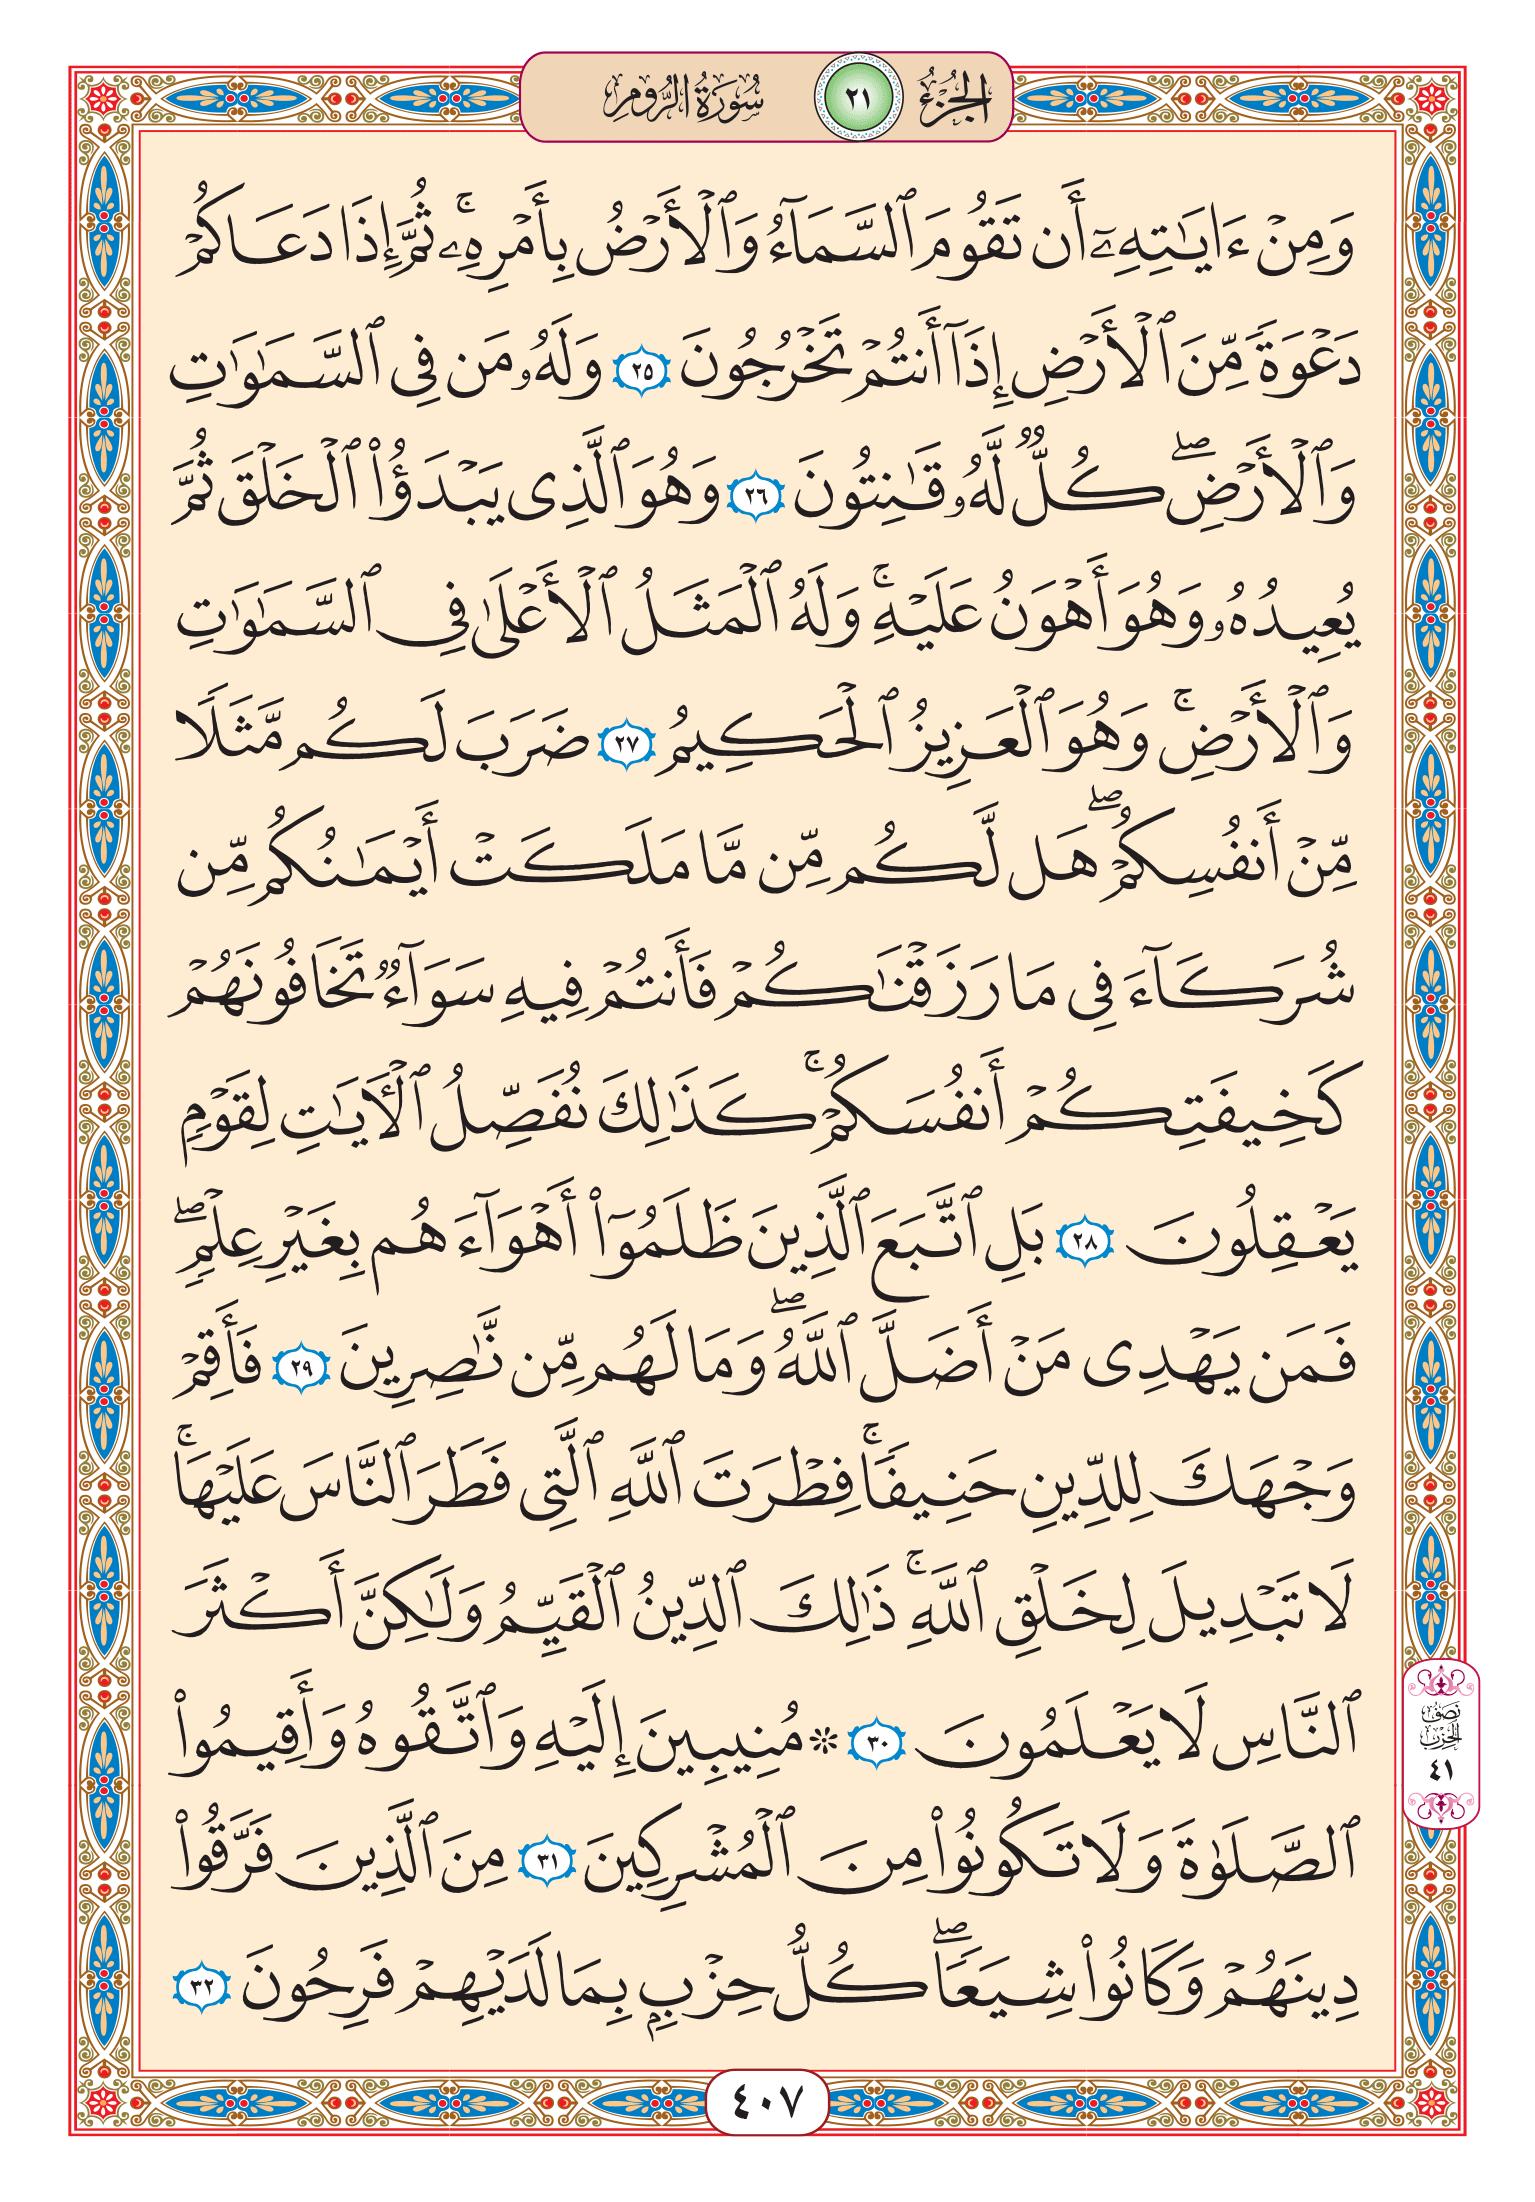 الجُزْءُ ٢١ سُورَةُ الرُّومِ
وَمِنْ ءَايَٰتِهِۦٓ أَن تَقُومَ ٱلسَّمَآءُ وَٱلْأَرْضُ بِأَمْرِهِۦۚ ثُمَّ إِذَا دَعَاكُمْ
دَعْوَةً مِّنَ ٱلْأَرْضِ إِذَآ أَنتُمْ تَخْرُجُونَ ٢٥ وَلَهُۥ مَن فِى ٱلسَّمَٰوَٰتِ
وَٱلْأَرْضِۖ كُلٌّ لَّهُۥ قَٰنِتُونَ ٢٦ وَهُوَ ٱلَّذِى يَبْدَؤُا۟ ٱلْخَلْقَ ثُمَّ
يُعِيدُهُۥ وَهُوَ أَهْوَنُ عَلَيْهِۚ وَلَهُ ٱلْمَثَلُ ٱلْأَعْلَىٰ فِى ٱلسَّمَٰوَٰتِ
وَٱلْأَرْضِۚ وَهُوَ ٱلْعَزِيزُ ٱلْحَكِيمُ ٢٧ ضَرَبَ لَكُم مَّثَلًا
مِّنْ أَنفُسِكُمْۖ هَل لَّكُم مِّن مَّا مَلَكَتْ أَيْمَٰنُكُم مِّن
شُرَكَآءَ فِى مَا رَزَقْنَٰكُمْ فَأَنتُمْ فِيهِ سَوَآءٌ تَخَافُونَهُمْ
كَخِيفَتِكُمْ أَنفُسَكُمْۚ كَذَٰلِكَ نُفَصِّلُ ٱلْءَايَٰتِ لِقَوْمٍ
يَعْقِلُونَ ٢٨ بَلِ ٱتَّبَعَ ٱلَّذِينَ ظَلَمُوٓا۟ أَهْوَآءَهُم بِغَيْرِ عِلْمٍۖ
فَمَن يَهْدِى مَنْ أَضَلَّ ٱللَّهُۖ وَمَا لَهُم مِّن نَّٰصِرِينَ ٢٩ فَأَقِمْ
وَجْهَكَ لِلدِّينِ حَنِيفًاۚ فِطْرَتَ ٱللَّهِ ٱلَّتِى فَطَرَ ٱلنَّاسَ عَلَيْهَاۚ
لَا تَبْدِيلَ لِخَلْقِ ٱللَّهِۚ ذَٰلِكَ ٱلدِّينُ ٱلْقَيِّمُ وَلَٰكِنَّ أَكْثَرَ
ٱلنَّاسِ لَا يَعْلَمُونَ ٣٠ ۞ مُنِيبِينَ إِلَيْهِ وَٱتَّقُوهُ وَأَقِيمُوا۟
نِصْفُ
الحِزْبِ
٤١
ٱلصَّلَوٰةَ وَلَا تَكُونُوا۟ مِنَ ٱلْمُشْرِكِينَ ٣١ مِنَ ٱلَّذِينَ فَرَّقُوا۟
دِينَهُمْ وَكَانُوا۟ شِيَعًاۖ كُلُّ حِزْبٍۭ بِمَا لَدَيْهِمْ فَرِحُونَ ٣٢
٤٠٧